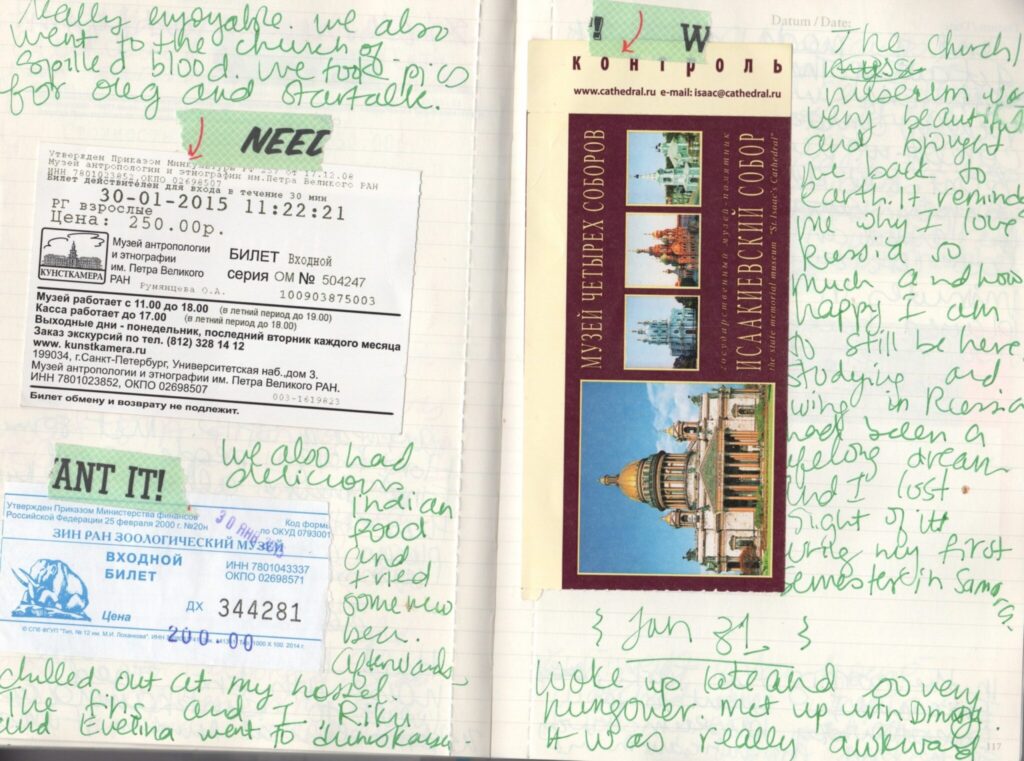 Really enjoyable. We also
went to the church of
Spilled blood. We took pics
for Oleg and Startalk.
NEED
Утвержден Приказом Минкультуры РФ 257 от 17.12.08
Музей антропологии и этнографии им.Петра Великого РАН
ИНН 7801023852,ОКПО 02698507
Билет действителен для входа в течение 30 мин
30-01-2015 11:22:21
РГ взрослые
Цена: 250.00р.
КУНСТКАМЕРА
Музей антропологии
и этнографии
им. Петра Великого
РАН
БИЛЕТ Входной
серия ОМ № 504247
Румянцева О.А. 100903875003
Музей работает с 11.00 до 18.00 (в летний период до 19.00)
Касса работает до 17.00 (в летний период до 18.00)
Выходные дни - понедельник, последний вторник каждого месяца
Заказ экскурсий по тел. (812) 328 14 12
www. kunstkamera.ru
199034, г.Санкт-Петербург, Университетская наб.,дом 3.
Музей антропологии и этнографии им. Петра Великого РАН.
ИНН 7801023852, ОКПО 02698507 003-1619823
Билет обмену и возврату не подлежит.
ANT IT!
Утвержден Приказом Министерства финансов
Российской Федерации 25 февраля 2000 г. №20н
Код формы
по ОКУД 0793001
ЗИН РАН ЗООЛОГИЧЕСКИЙ МУЗЕЙ
ВХОДНОЙ
БИЛЕТ
ИНН 7801043337
ОКПО 02698571
Цена
ДХ 344281
200-00
We also had
delicious
indian
food
and
tried
some new
beer.
Afterwards
chilled out at my hostel.
The fins and I, Riku
and Evelina went to
! W
контроль
www.cathedral.ru e-mail: isaac@cathedral.ru
МУЗЕЙ ЧЕТЫРЕХ СОБОРОВ
государственный музей-памятник
ИСААКИЕВСКИЙ СОБОР
the state memorial museum "St.Isaac's Cathedral"
Datum / Date:
The church/
museum was
very beautiful
and brought
me back to
earth. It reminds
me why I love
Russia so
much and how
happy I am
to still be here.
Studying and
living in Russia
had been a
lifelong dream
and I lost
sight of it
during my first
semester in Samara.
{ Jan 31 }
Woke up late and so very
hungover. Met up with
It was really awkward
117